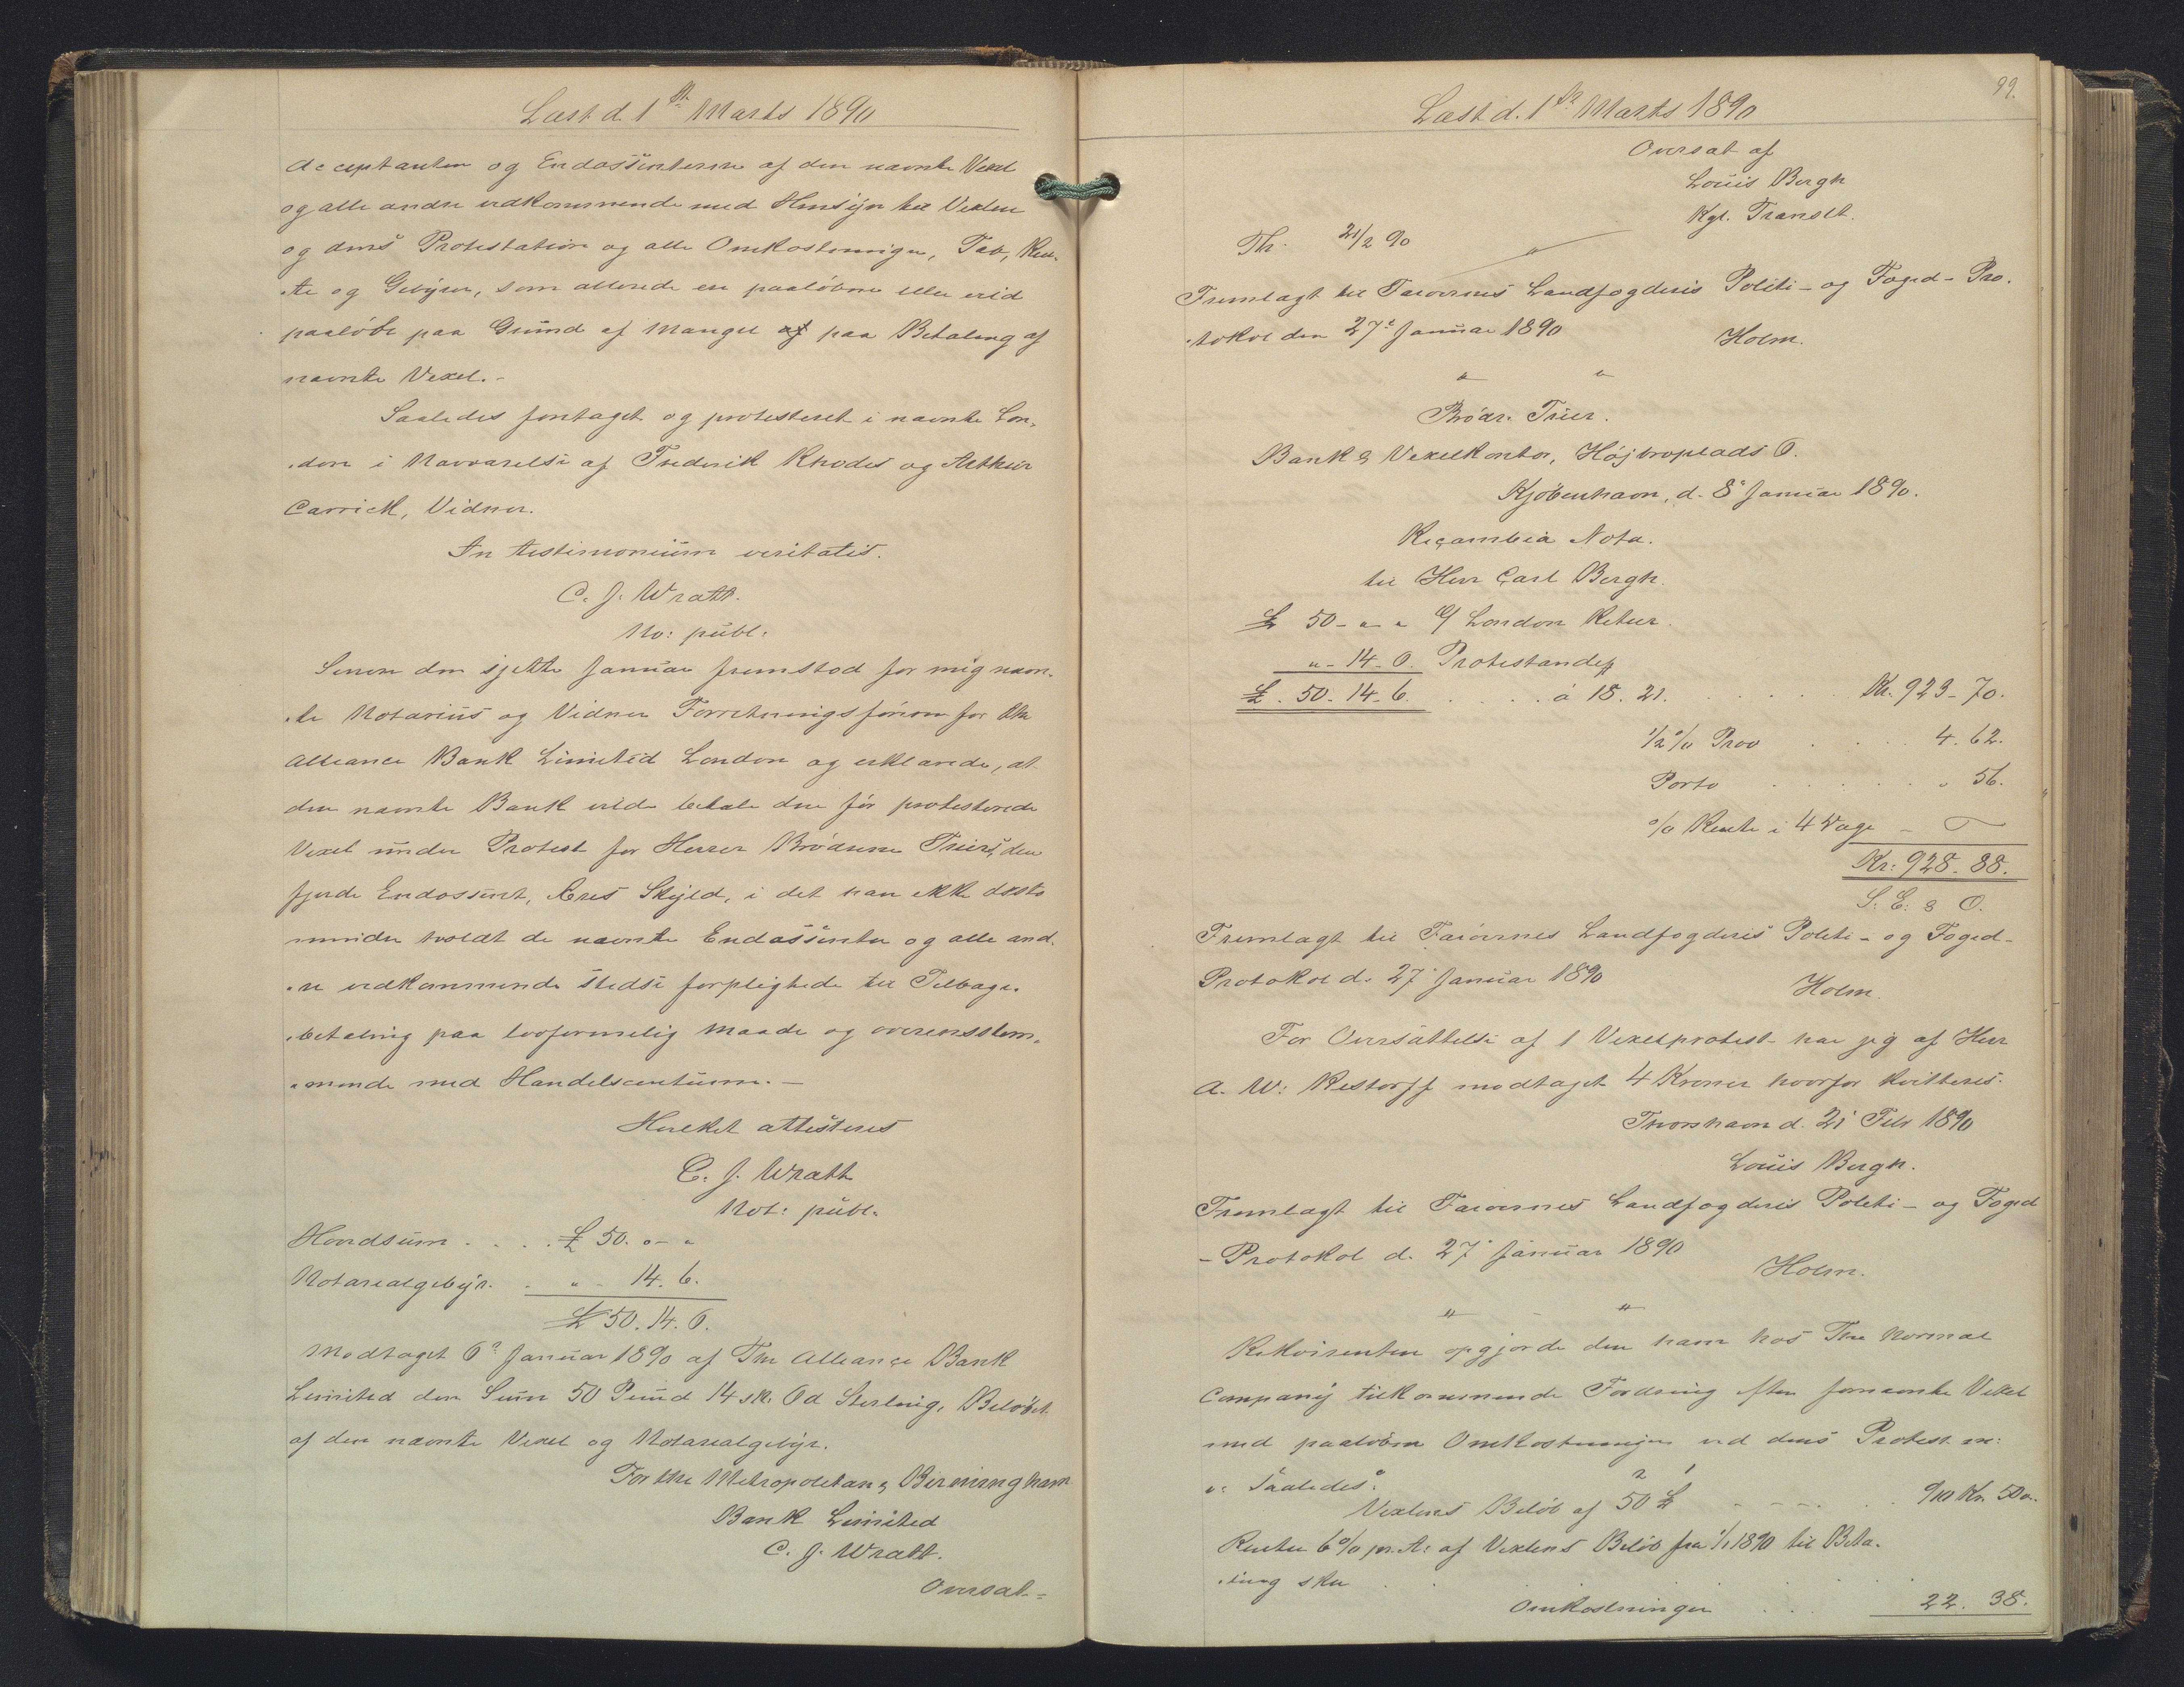 Læst d. 1ste Marts 1890
Acceptanten og Endossenterne af den nævnte Vexel
og alle andre vedkommende med Hensyn til Vexlen
og dens Protestation og alle Omkostninger, Tab, Ren-
-te og Gebyrer, som allerede ere paaløbne eller vild
paaløbe paa Grund af Mangel af paa Betaling af
nævnte Vexel.-
Saaledes foretaget og protesteret i nævnte Lon-
-don i Nærværelse af Frederik Rhodes og Arthur
Carrick, Vidner.
In testimonium veritatis.
C. J. Wratt.
No: publ:
Senere den sjette Januar fremstod for mig nævn-
-te Notarius og Vidner Forretningsføreren for the
Alliance Bank Limited London og erklærede, at
den nævnte Bank vilde betale den før protesterede
Vexel under Protest for Herrer Brødrene Triers, den
fjerde Endossent, Æres Skyld, i det han ikke desto
mindre holdt de nævnte Endossenter og alle and-
-re vedkommende stedse forpligtede til Tilbage-
-betaling paa lovformelig Maade og overensstem-
-mende med Handelscoutumen.-
Hvilket attesteres
C. J. Wratt
Not: publ.
Hovedsum . . . . £ 50. "- "
Notarialgebyr. . "- 14. 6.
£ 50. 14. 6.
Modtaget 6te Januar 1890 af The Alliance Bank
Limited den Sum 50 Pund 14 sk. 6d Sterling, Beløbet
af den nævnte Vexel og Notarialgebyr.
For the Metropolitan & Birmingham
Bank Limited
C. J. Wratt.
Oversat-
99.
Læst d. 1ste Marts 1890
Oversat af
Louis Bergh
Kgl. Translt.
Th. 21/2 90
Fremlagt til Færøernes Landfogderis Politi- og Foged-Pro-
-tokol den 27' Januar 1890 Holm.
" "
Brødr. Trier.
Bank & Vexelkontor, Højbroplads 6.
Kjøbenhavn, d. 8' Januar 1890.
Recambia Nota.
til Herr Carl Bergh.
£ 50 - " " % London Retur.
" - 14. 6. Protestandeg
£. 50. 14. 6. . . . . á 18. 21. . . . . . Kr. 923 - 70.
1/2 % Prov . . . . 4. 62.
Porto . . . . . . " 56.
% Rente i 4 Dage -
Kr: 928. 88.
S. E. & O.
Fremlagt til Færøernes Landfogderis Politi- og Foged-
Protokol d. 27' Januar 1890 Holm.
For Oversættelse af 1 Vexelprotest har jeg af Herr
A. W: Restorff modtaget 4 Kroner hvorfor kvitteres.
Thorshavn d. 21' Febr 1890
Louis Bergh.
Fremlagt til Færøernes Landfogderis Politi- og Foged
-Protokol d. 27' Januar 1890
Holm.
" - "
Rekvirenten opgjorde den ham hos The Normal
Company tilkommende Fordring efter fornævnte Vexel
med paaløbne Omkostninger ved dens Protest m:
v: saaledes:
Vexlens Beløb af 50 £ - - - . . 910 Kr. 50 ø.
Renter 6 % pr. A: af Vexlens Beløb fra 1/1 1890 til Beta-
-ling sker . . . . . . .
Omkostninger . . . 22. 38.